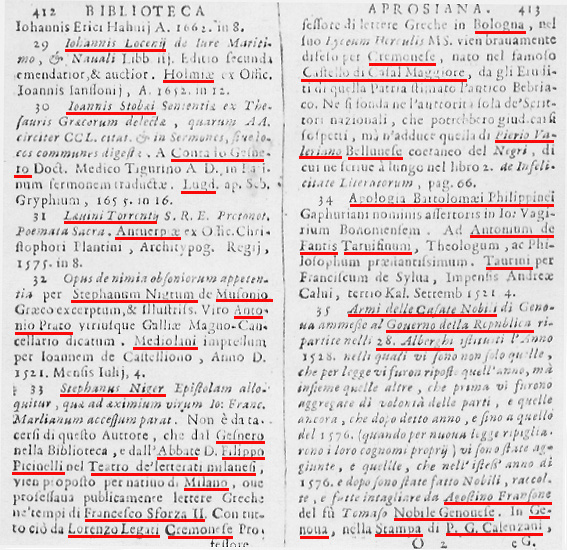 412 BIBLIOTECA
Iohannis Erici Hahnij A. 1662. in 8.
29 Iohannis Locenij de Iure Mariti-
mo, & Nauali Libb iij. Editio secunda
emendatior, & auctior. Holmiæ ex Offic.
Ioannis Ianssonij, A. 1652. in 12.
30 Ioannis Stobæi Sententiæ ex The-
sauris Græcorum delectæ, quarum AA.
circiter CCL. citat. & in Sermones, siue lo-
cos communes digestæ. A Conrado Gesne-
ro Doct. Medico Tigurino A D. in Lati-
num sermonem traductæ. Lugd. ap. S.b.
Gryphium, 1655. in 16.
31 Læuini Torrentij S. R. E. Protonot.
Poemata Sacra. Antuerpiæ ex Offic. Chri-
stophori Plantini, Architypog. Regij,
1575. in 8.
32 Opus de nimia obsoniorum appeten-
tia per Stephanum Nigrum de Musonio
Græco excerptum, & Illustriss. Viro Anto-
nio Prato vtriusque Galliæ Magno-Can-
cellario dicatum. Mediolani impressum
per Ioannem de Castelliono, Anno D.
1521. Mensis Iulij, 4.
33 Stephanus Niger Epistolam allo-
quitur, quæ ad eximium virum Io. Franc.
Marlianum accessum parat. Non è da ta-
cersi di questo Auttore, che dal Gesnero
nella Biblioteca, e dall'Abbate D. Filippo
Picinelli nel Teatro de'letterati milanesi,
vien proposto per natiuo di Milano, oue
professaua publicamente lettere Greche
ne'tempi di Francesco Sforza II. Con tut-
to ciò da Lorenzo Legati Cremonese Pro-
fessore
APROSIANA. 413
fessore di lettere Greche in Bologna, nel
suo Lyceum Herculis MS. vien brauamente
difeso per Cremonese, nato nel famoso
Castello di Casal Maggiore, da gli Eruditi
di quella Patria stimato l'antico Bebria-
co. Ne si fonda ne l'auttorità sola de'Scrit-
tori nazionali, che potrebbero giudicarsi
sospetti, mà n'adduce quella di Pierio Va-
leriano Bellunese coetaneo del Negri, di
cui ne scriue à lungo nel libro 2. de Infeli-
citate Literatorum, pag. 66.
34 Apologia Bartolomæi Philippinei
Gaphuriani nominis assertoris in Io: Vagi
rium Bononiensem. Ad Antonium de
Fantis Taruisinum, Theologum, ac Phi-
losophum præstantissimum. Taurini per
Franciscum de Sylua, Impensis Andreæ
Calui, tertio Kal. Settemb 1521 4.
35 Armi delle Casate Nobili di Geno-
ua ammesse al Gouerno della Republica ri-
partite nelli 28. Alberghi istituti l'Anno
1528. nelli quali vi sono non solo quelle,
che per legge vi furon riposte quell'anno, mà
insieme quelle altre, che prima vi furono
aggregate di volontà delle parti, e quelle
ancora, che dopo detto anno, e sino a quello
del 1576. (quando per nuoua legge ripiglia-
rono i loro cognomi proprij) vi sono state ag-
giunte, e quelle, che nell'istess' anno di
1576. e dopo sono state fatto Nobili, raccol-
te, e fatte intagliare da Agostino Fransone
del fù Tomaso Nobile Genouese. In Ge-
noua, nella Stampa di P. G. Calenzani,
O 2 e G.